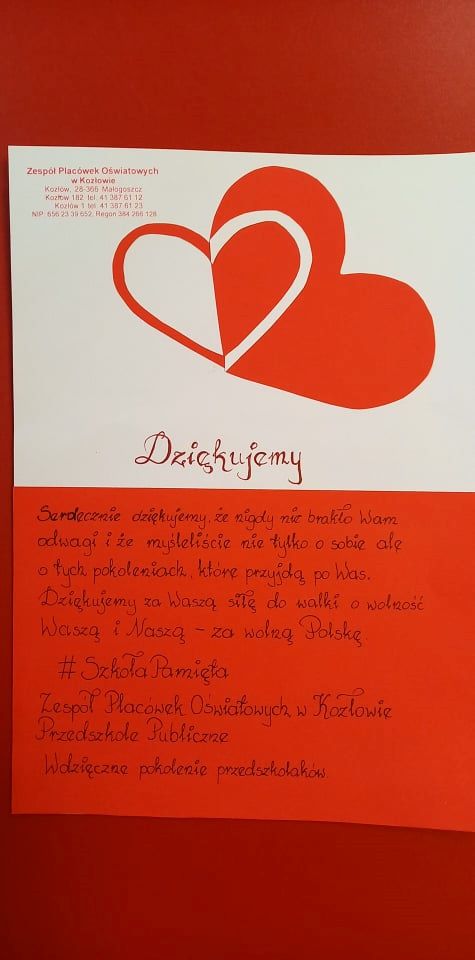 Zespół Placówek Oświatowych
w Kozłowie
Kozłów, 28-366 Małogoszcz
Kozłów 182 tel. 41 387 61 12
Kozłów 1 tel. 41 387 61 23
NIP: 656 23 39 652, Regon 384 266 128
Dziękujemy
Serdecznie dziękujemy, że nigdy nie brakło Wam
odwagi i że myśleliście nie tylko o sobie ale
o tych pokoleniach, które przyjdą po Was.
Dziękujemy za Waszą siłę do walki o wolność
Waszą i Naszą – za wolną Polskę.
#SzkołaPamięta
Zespół Placówek Oświatowych w Kozłowie
Przedszkole Publiczne
Wdzięczne pokolenie przedszkolaków.